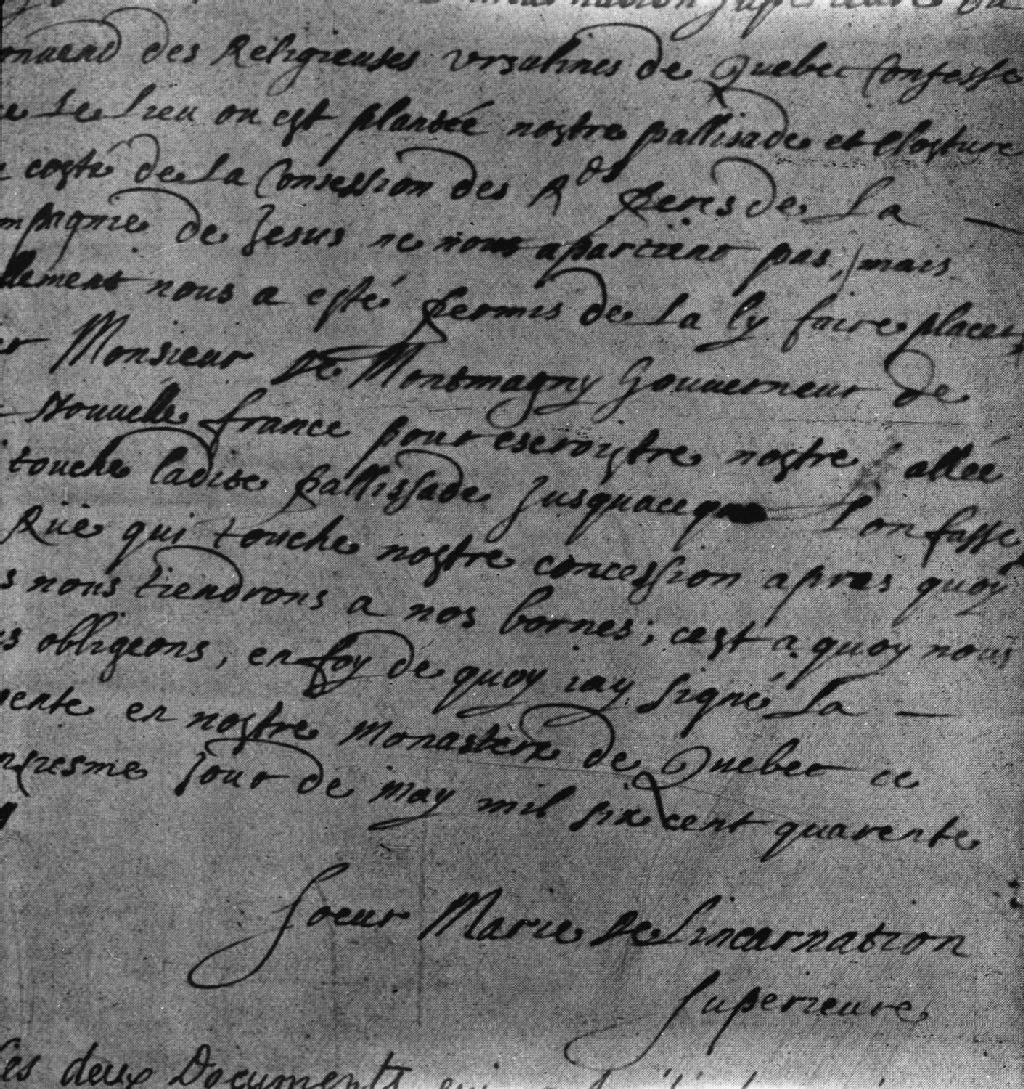 incarnation superieure du
onuend des Religieuses vrsulines de Quebec Confesse
e Le Lieu ou est plantée nostre pallisade et Closture
costé de La Consession des Rds peres de La —
mpagnie de Jesus ne nous apartient pas, mais
llement nous a esté permis de La ly faire placer
r Monsieur de Montmagny Gouuerneur de
Nouuelle france pour escroistre nostre allée
touche ladite pallissade Jusquaceque Lon fasse
Rüe qui touche nostre concession apres quoy
s nous tiendrons a nos bornes; cest a quoy nous
s obligeons, en foy de quoy iay signé La —
sente en nostre Monastere de Quebec ce
jour de may mil six cent quarente
Soeur Marie De Lincarnation
Superieure
Ces deux Documents